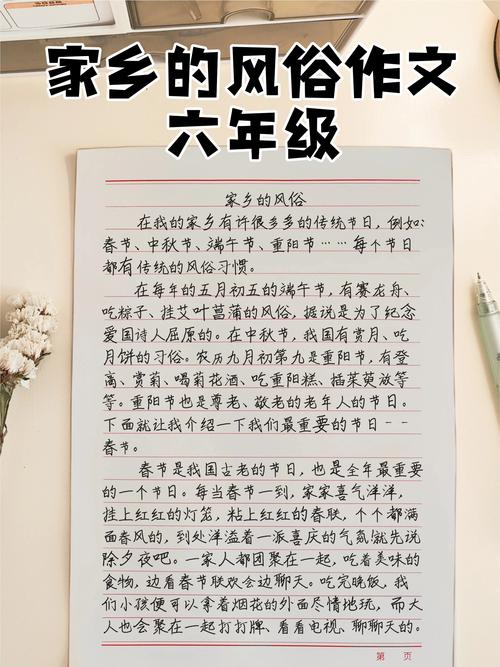 家乡的风俗作文
六年级
家乡的风俗
在我的家乡有许很多多的传统节日，例如:
春节、中秋节、端午节、重阳节……每个节日
都有传统的风俗习惯。
在每年的五月初五的端午节，有赛龙舟、
吃粽子、挂艾叶菖蒲的风俗，据说是为了纪念
爱国诗人屈原的。在中秋节，我国有赏月、吃
月饼的习俗。农历九月初第九是重阳节，有登
高、赏菊、喝菊花酒、吃重阳糕、插茱萸放等
等。重阳节也是尊老、敬老的老年人的节日。
下面就让我介绍一下我们最重要的节日--
春节。
春节是我国古老的节日，也是全年最重要
的一个节日。每当春节一到，家家喜气洋洋，
挂上红红的灯笼，粘上红红的春联，个个都满
面春风的，到处洋溢着一派喜庆的气氛就先说
除夕夜吧。一家人都团聚在一起，吃着美味的
食物，边看春节联欢会边聊天。吃完晚饭，我
们小孩便可以拿着烟花的外面尽情地玩，而大
人也会聚在一起打打牌、看看电视、聊聊天的。
第 页